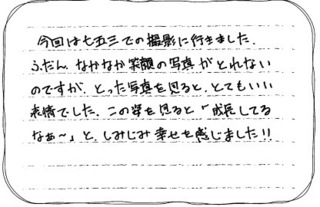 今回は七五三での撮影に行きました.
ふだん、なかなか笑顔の写真がとれない
のですが、とった写真を見ると、とてもいい
表情でした. この姿を見ると「成長してる
なぁ〜」と、しみじみ幸せを感じました!!